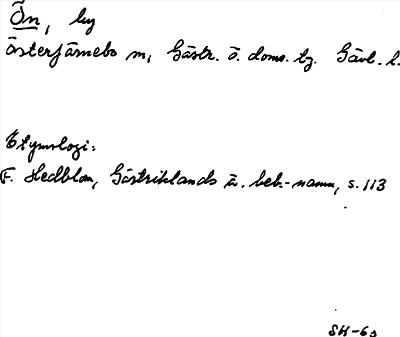 Ön, by
Österfärnebo sn, Gästr. ö. doms. tg. Gävl. l.
Etymologi:
F. Hedblom, Gästriklands ä. beb.-namn, s. 113
SH-60